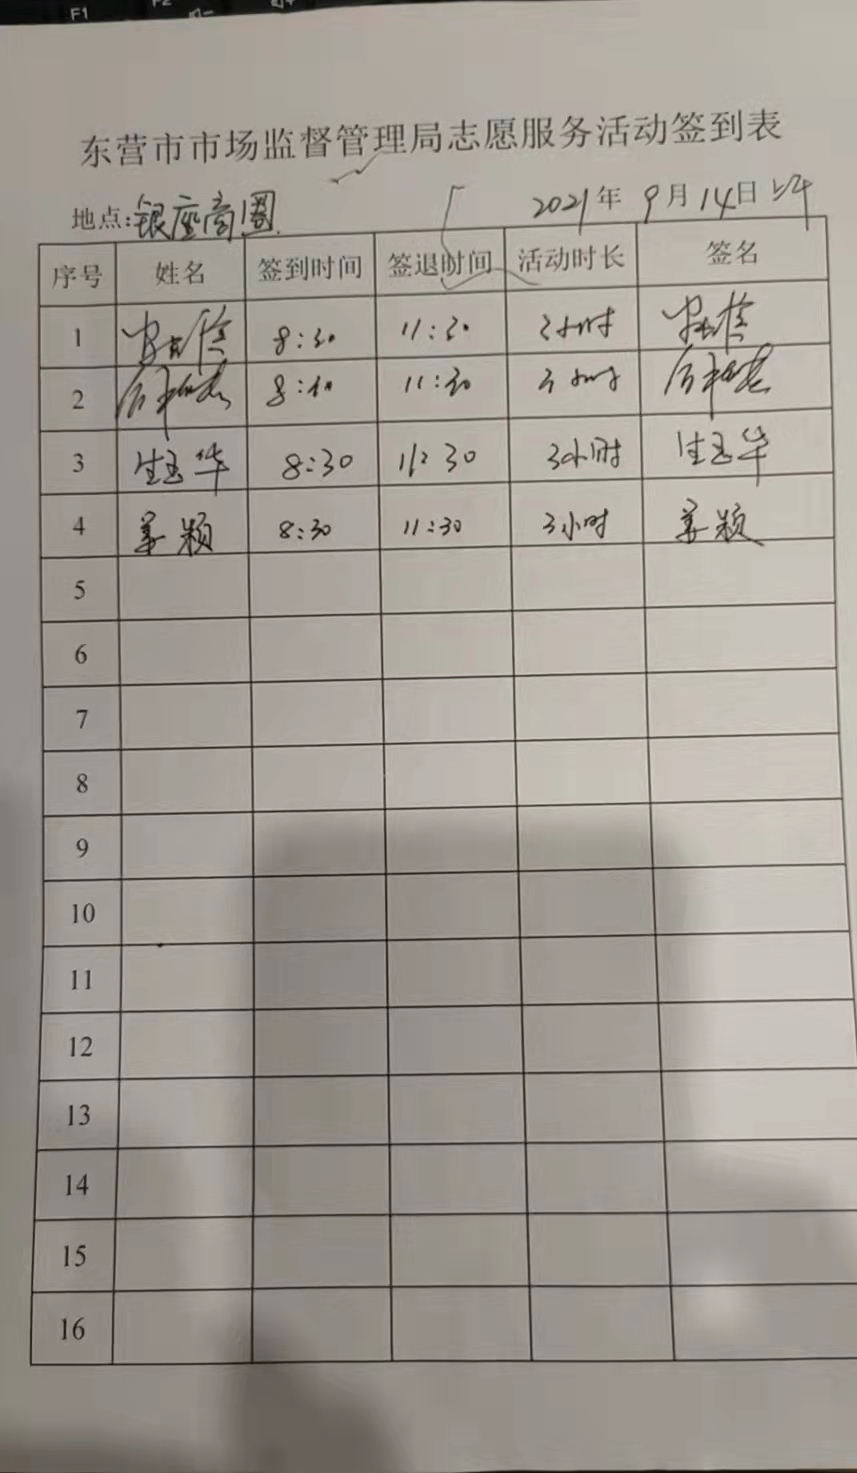 F1
F2
东营市市场监督管理局志愿服务活动签到表
地点:银座商圈 2021年 9月14日 上午
序号 姓名 签到时间 签退时间 活动时长 签名
1 8:30 11:30 3小时
2 8:30 11:30 3小时
3 生玉华 8:30 11:30 3小时 生玉华
4 姜颖 8:30 11:30 3小时 姜颖
5
6
7
8
9
10
11
12
13
14
15
16